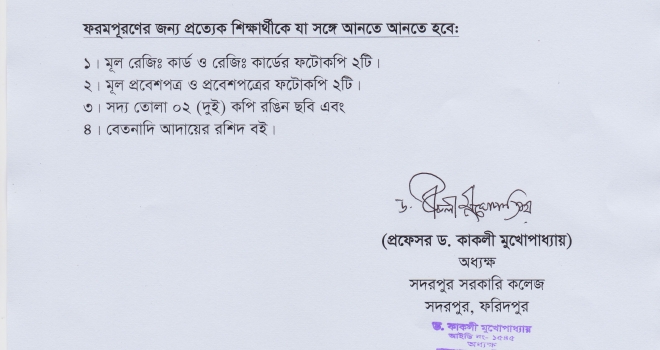 ফরমপূরণের জন্য প্রত্যেক শিক্ষার্থীকে যা সঙ্গে আনতে আনতে হবে:
১। মূল রেজিঃ কার্ড ও রেজিঃ কার্ডের ফটোকপি ২টি।
২। মূল প্রবেশপত্র ও প্রবেশপত্রের ফটোকপি ২টি।
৩। সদ্য তোলা ০২ (দুই) কপি রঙিন ছবি এবং
৪। বেতনাদি আদায়ের রশিদ বই।
ড. কাকলী মুখোপাধ্যায়
(প্রফেসর ড. কাকলী মুখোপাধ্যায়)
অধ্যক্ষ
সদরপুর সরকারি কলেজ
সদরপুর, ফরিদপুর
ড. কাকলী মুখোপাধ্যায়
আইডি নং-
অধ্যক্ষ